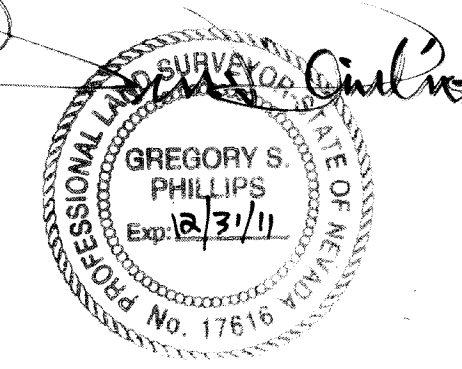 PROFESSIONAL LAND SURVEYOR STATE OF NEVADA
GREGORY S.
PHILLIPS
Exp: 12/31/11
No. 17616